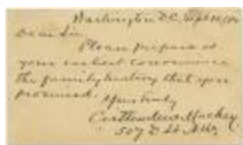 Washington D.C. Sept
Dear Sir
Please prepare at
your earliest convenience
the family history that you
promised.
Yours truly
Mackey
507 D St. N.W.